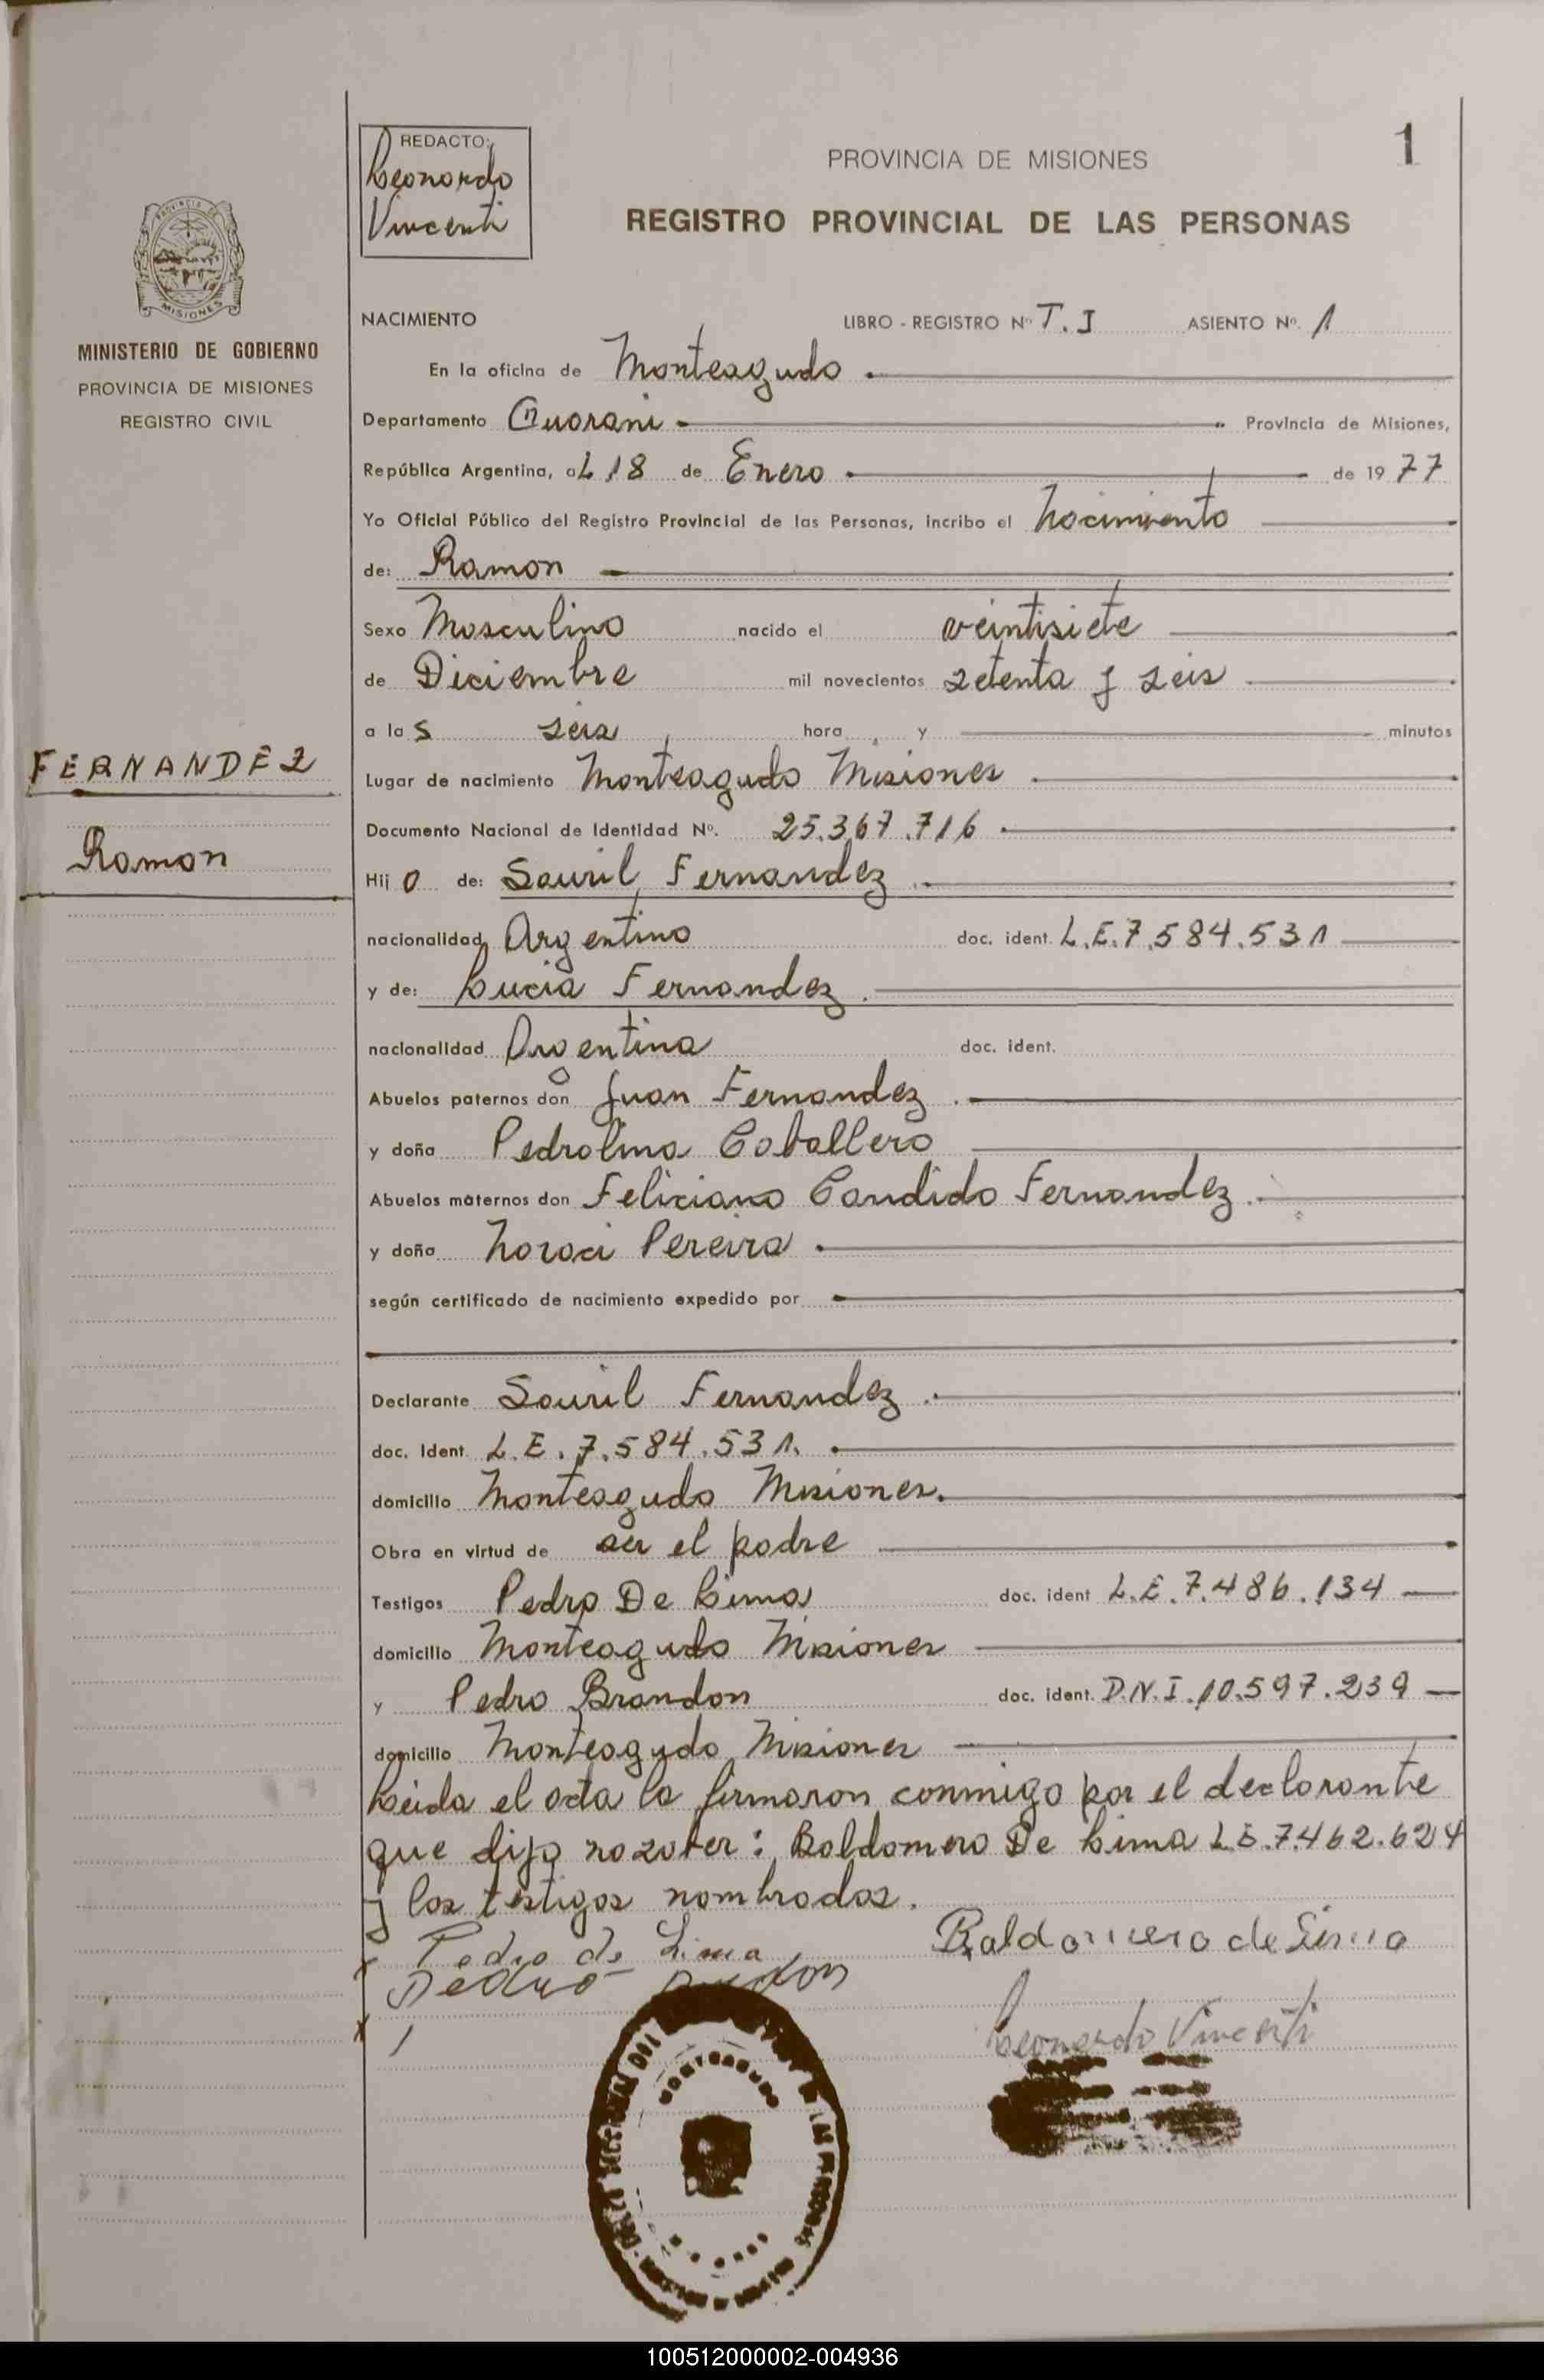 REDACTO:
Leonardo
Vincenti
PROVINCIA DE MISIONES
1
REGISTRO PROVINCIAL DE LAS PERSONAS
PROVINCIA DE
MISIONES
MINISTERIO DE GOBIERNO
PROVINCIA DE MISIONES
REGISTRO CIVIL
NACIMIENTO LIBRO - REGISTRO Nº T. I ASIENTO Nº. 1
En la oficina de Monteagudo
Departamento Guarani Provincia de Misiones,
República Argentina, aL 18 de Enero de 1977
Yo Oficial Público del Registro Provincial de las Personas, incribo el Nacimiento
de: Ramon
Sexo Masculino nacido el veintisiete
de Diciembre mil novecientos setenta y seis
a las seis hora y minutos
FERNANDEZ
Ramon
Lugar de nacimiento Monteagudo Misiones
Documento Nacional de Identidad Nº. 25.367.716
Hijo de: Sauril Fernandez
nacionalidad Argentino doc. ident. L.E.7.584.531
y de: Lucia Fernandez
nacionalidad Argentina doc. ident.
Abuelos paternos don Juan Fernandez
y doña Pedrolina Caballero
Abuelos maternos don Feliciano Candido Fernandez
y doña Noraci Pereira
según certificado de nacimiento expedido por
Declarante Sauril Fernandez
doc. Ident. L.E. 7.584.531.
domicilio Monteagudo Misiones.
Obra en virtud de ser el padre
Testigos Pedro De Lima doc. ident L.E. 7.486.134
domicilio Monteagudo Misiones
y Pedro Brandon doc. ident. D.N.I. 10.597.239
domicilio Monteagudo Misiones
Leida el acta la firmaron conmigo por el declarante
que dijo no saber: Baldomero De Lima L.E.7.462.624
y los testigos nombrados.
Pedro de Lima
Baldomero de Lima
Pedro
Leonardo Vincenti
MONTEAGUDO
100512000002-004936